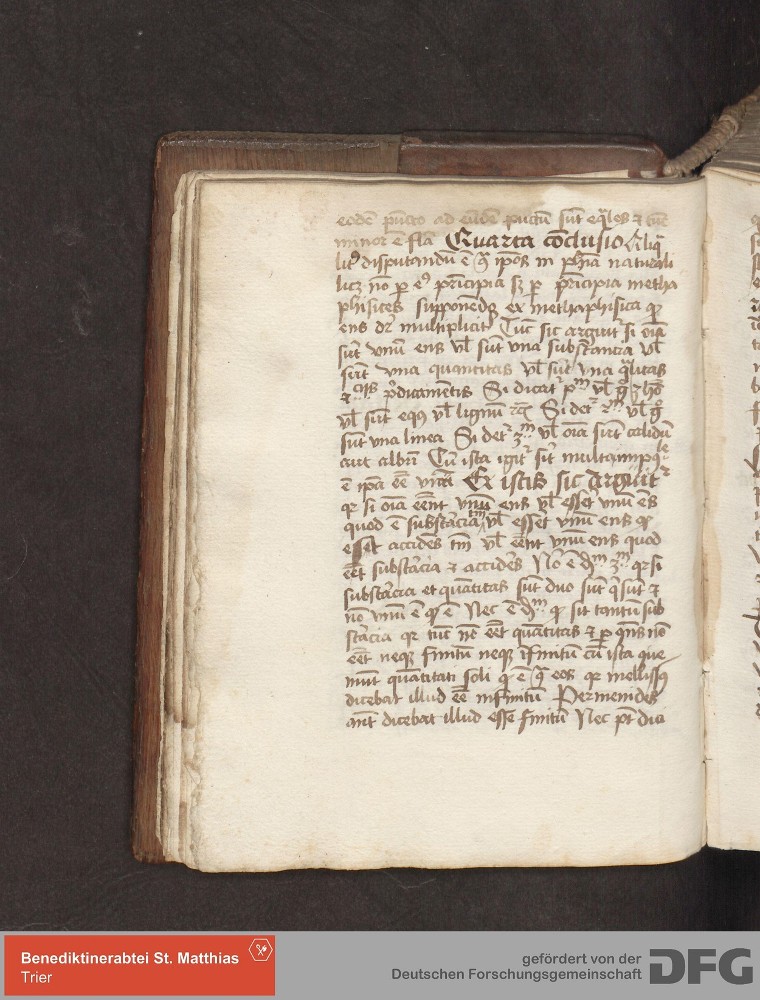 eodē pūcto ad eūdē pūctū sūt eq̄les ⁊ tūc
minor ē fl̄a Quarta cōclusio Aliq̄
lit᷑ disputandū ē ꝯ̄ ip̄os in ph̄ia naturali
licꝫ nō ꝑ eꝰ pr̄incipia sꝫ ꝑ pr̄incipia metha
phisices supponēdo ex methaphisica ꝙ
ens dr̄ multiplicit᷑ Tūc sic arguit᷑ si oīa
sūt vnū ens vl̄ sūt una substācia vl̄
sūt una quantitas vl̄ sūt una q̄litas
p̄dicamētis Si dicat᷑ pᵐ vl̄ hō
vl̄ sūt equꝰ vl̄ lignū Si det᷑ 2ᵐ vl̄
sūt vna linea Si det᷑ 3ᵐ vl̄ oīa sūt calidū
aut albū Cū ista igit᷑ sūt multa
ē ip̄a eē vnū Ex istis sic arguit᷑
qr̄ si oīa eēnt vnū ens vl̄ esset vnū ēs
quod ē substācia tm̄ vl̄ esset vnū ens ꝙ
esset accidēs tm̄ vl̄ eēnt vnū ens quod
eēt substācia ⁊ accidēs Nō ē 3ᵐ qr̄ si
substācia et quātitas sūt duo sūt ⁊
nō vnū ē ꝙ ē Nec ē ꝙ sit tantū sub
stācia qr̄ tūc nō eēt quātitas ⁊ ꝑ ꝯn̄s nō
eēt neqꝫ finitū neqꝫ īfinitū cū ista que
niūt quātitati soli ꝙ ē ꝯ̄ eos qr̄ mellissꝰ
dicebat illud eē infinitū Permenides
aūt dicebat illud esse finitū Nec pt̄ dici
Benediktinerabtei St. Matthias
Trier
gefördert von der
Deutschen Forschungsgemeinschaft DFG